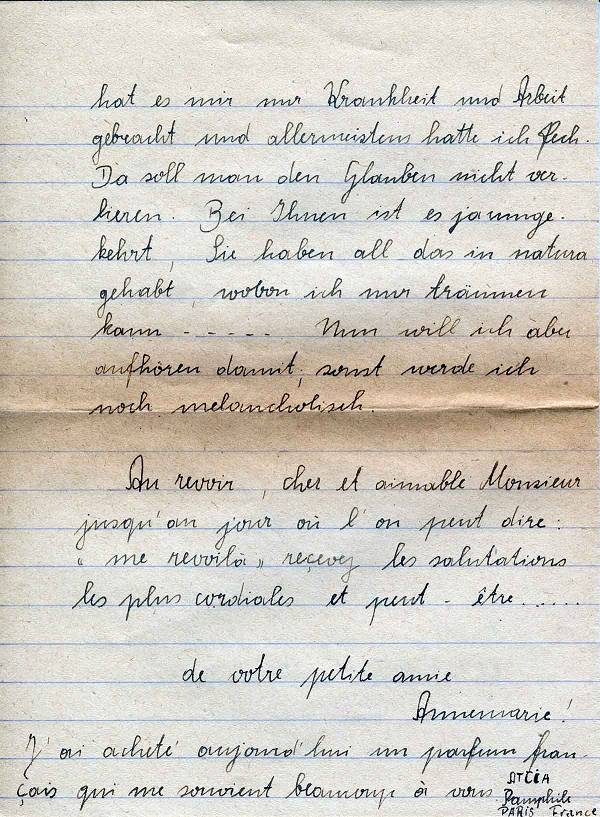 hat es mir nur Krankheit und Arbeit
gebracht und allermeistens hatte ich Pech.
Da soll man den Glauben nicht ver-
lieren. Bei Ihnen ist es ja umge-
kehrt, Sie haben all das in natura
gehabt, wovon ich nur träumen
kann ----- Nun will ich aber
aufhören damit, sonst werde ich
noch melancholisch.
Au revoir, cher et aimable Monsieur
jusqu'au jour où l'on peut dire:
"me revoilà" reçevez les salutations
les plus cordiales et peut-être.....
de votre petite amie
Annemarie!
J'ai acheté aujourd'hui un parfum fran-
çais qui me souvient beaucoup à vous
Pamphile
PARIS France